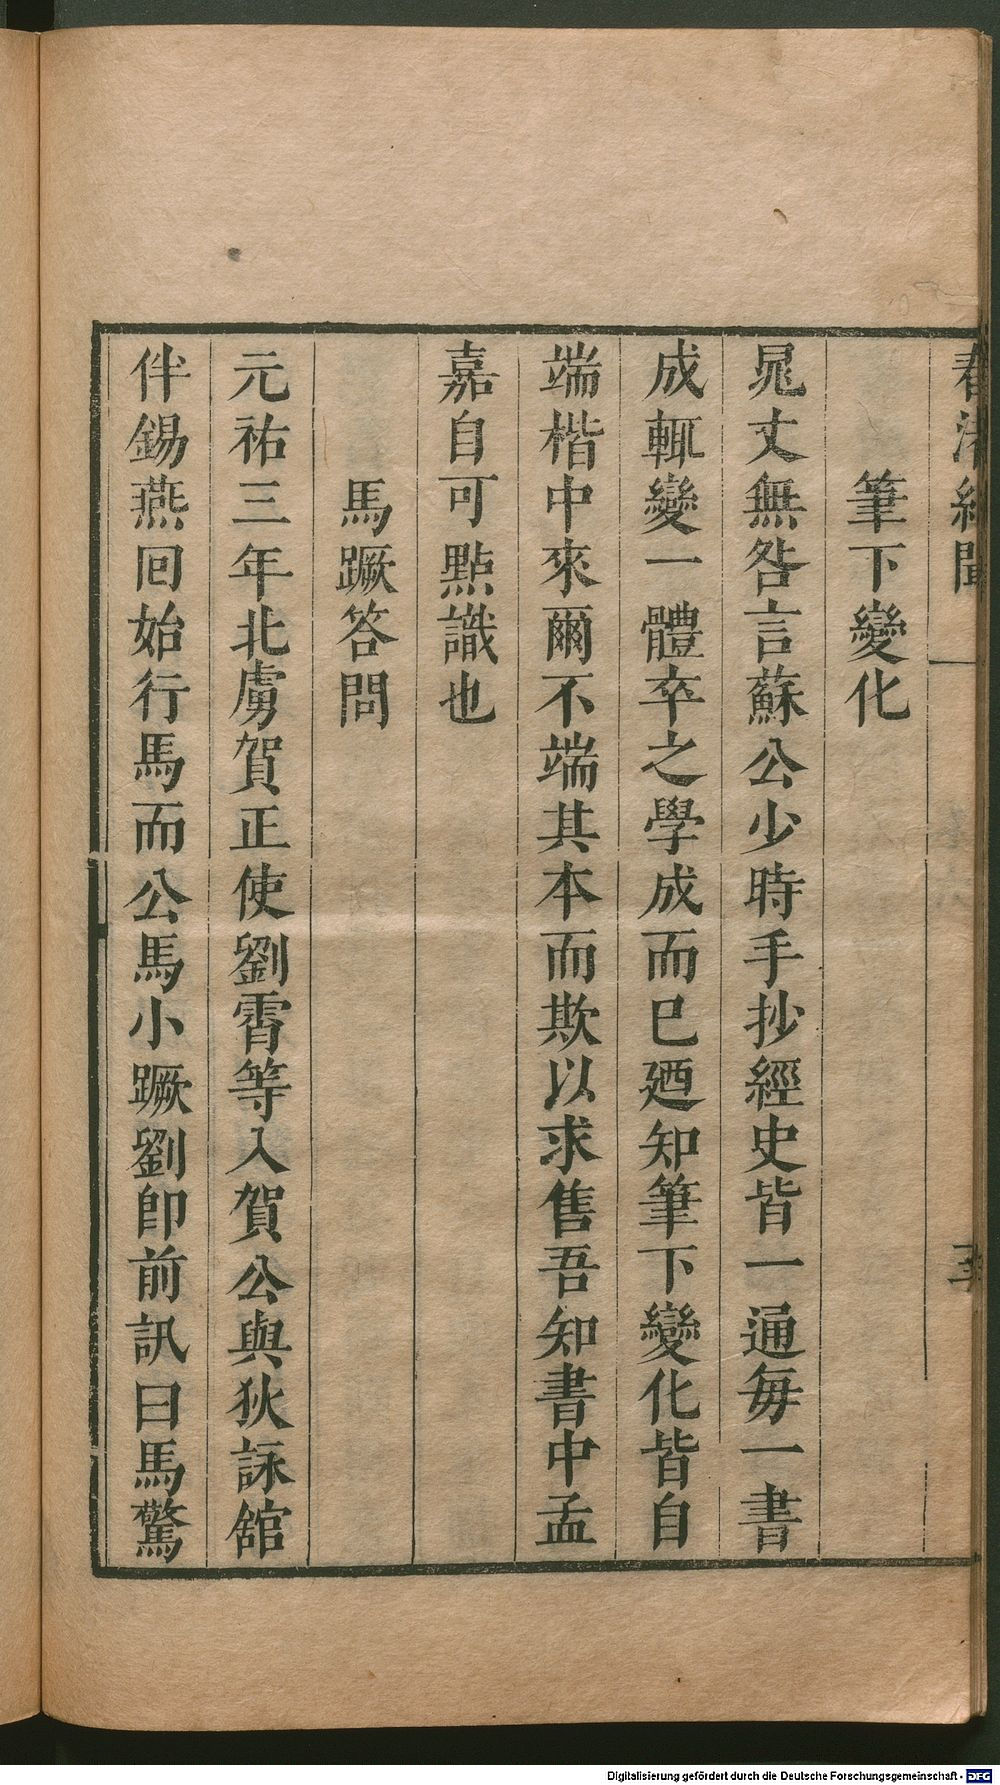 春渚紀聞
筆下變化
晁丈無咎言蘇公少時手抄經史皆一通每一書
成輒變一體卒之學成而已廼知筆下變化皆自
端楷中來爾不端其本而欺以求售吾知書中孟
嘉自可默識也
馬蹶答問
元祐三年北虜賀正使劉霄等入賀公與狄詠舘
伴錫燕回始行馬而公馬小蹶劉卽前訊曰馬驚
Digitalisierung gefördert durch die Deutsche Forschungsgemeinschaft - DFG